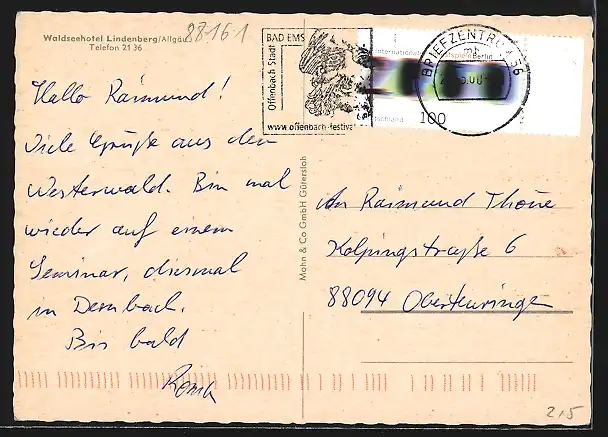 Waldseehotel Lindenberg/Allgäu
Telefon 21 36
88161
BAD EMS
Offenbach Stadt
www.offenbach-festival
BRIEFZENTRUM 56
mb
100
Hallo Raimund!
Viele Grüße aus dem
Westerwald. Bin mal
wieder auf einem
Seminar, diesmal
in Dernbach.
Bis bald
Mohn & Co GmbH Gütersloh
An Raimund Thöne
Kolpingstraße 6
88094 Oberteuringen
215